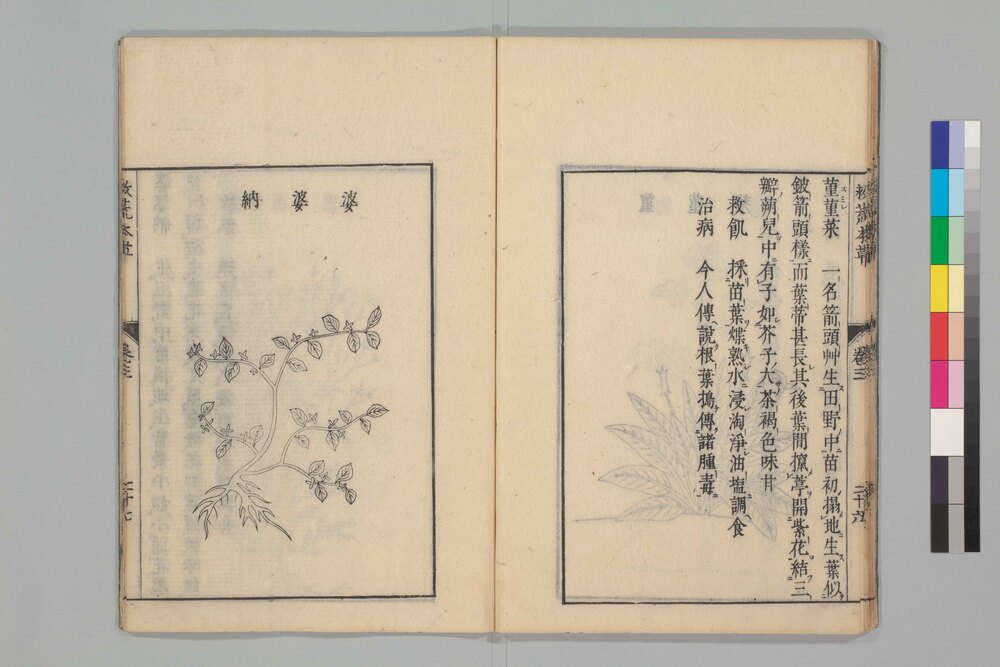 菫菫菜 一名箭頭艸生田野中苗初搨地生葉似
鈹箭頭樣而葉蔕甚長其後葉間攛葶開紫花結三
瓣蒴兒中有子如芥子大茶褐色味甘
救飢 採苗葉煠熟水浸淘淨油塩調食
治病 今人傳說根葉搗傅諸腫毒
救荒本草
卷之三
二十六
婆婆納
救荒本草
卷之三
二十七